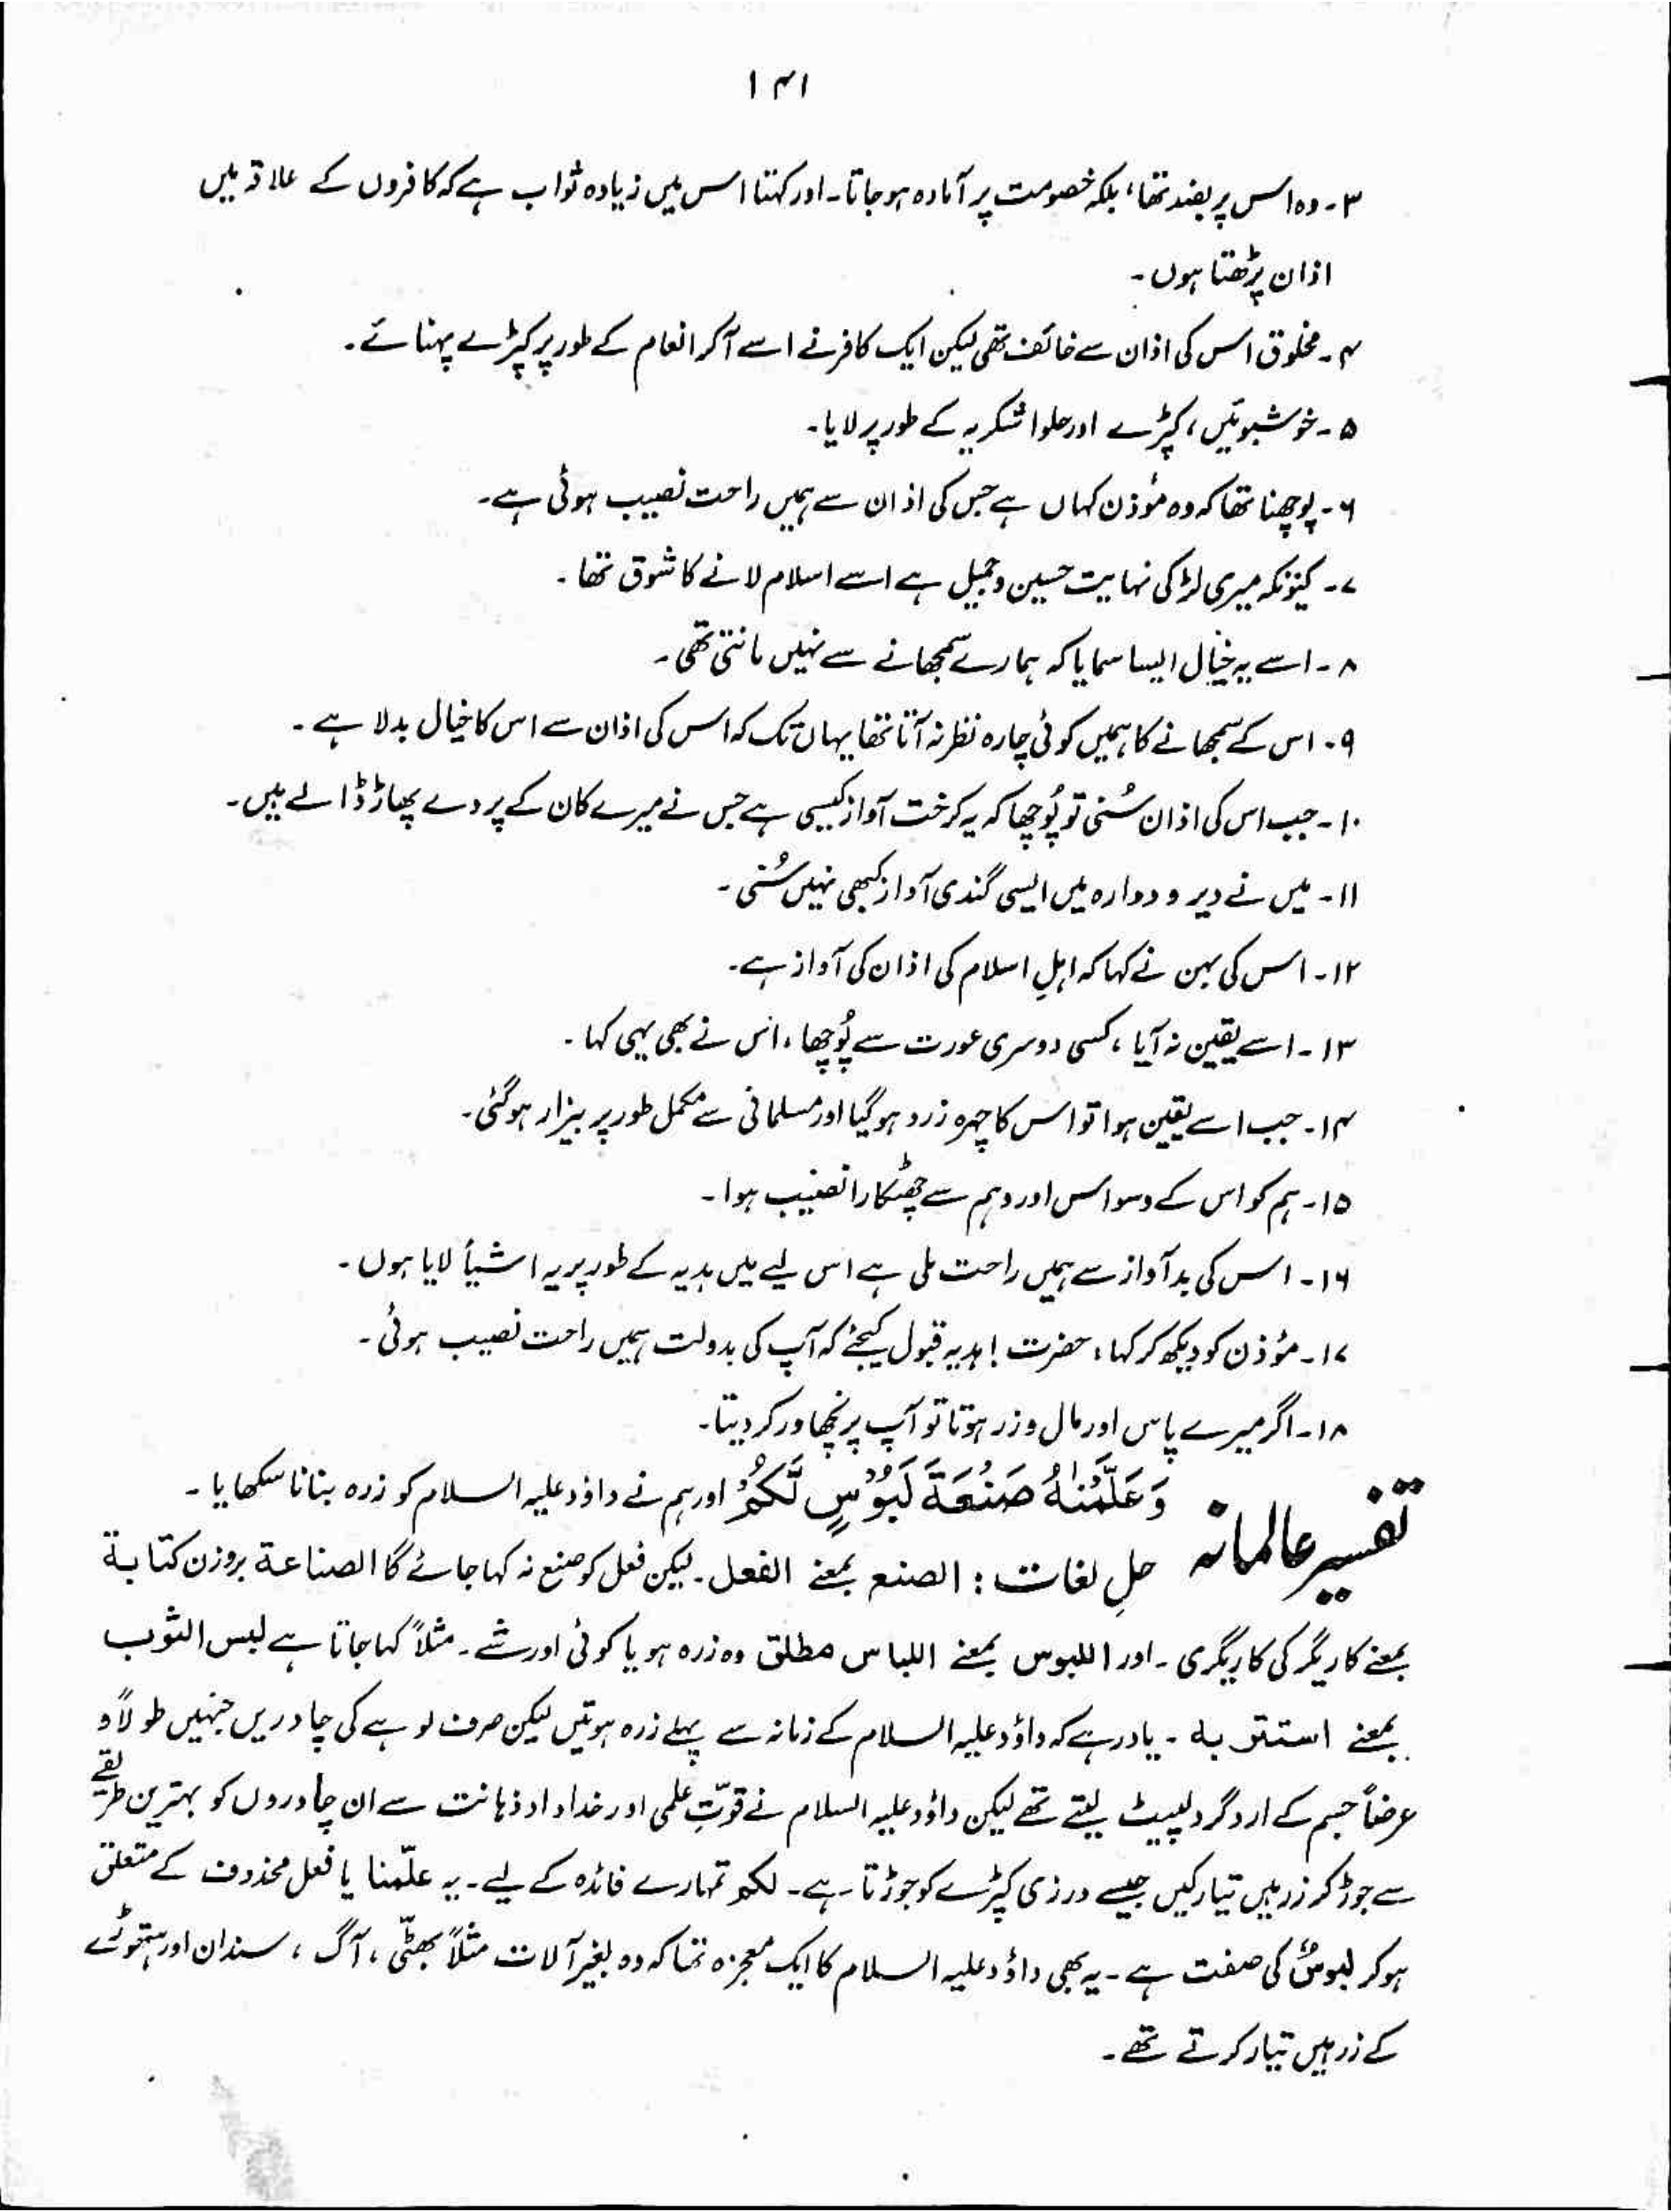 ۱۴۱
۳۔ وہ اس پر بضد تھا، بلکہ خصومت پر آمادہ ہو جاتا۔ اور کہتا اس میں زیادہ ثواب ہے کہ کافروں کے علاقہ میں
اذان پڑھتا ہوں۔
۴۔ مخلوق اس کی اذان سے خائف تھی لیکن ایک کافر نے اسے آکر انعام کے طور پر کپڑے پہنائے۔
۵۔ خوشبوئیں، کپڑے اور حلوا شکریہ کے طور پر لایا۔
۶۔ پوچھتا تھا کہ وہ مؤذن کہاں ہے جس کی اذان سے ہمیں راحت نصیب ہوئی ہے۔
۷۔ کیونکہ میری لڑکی نہایت حسین و جمیل ہے اسے اسلام لانے کا شوق تھا۔
۸۔ اسے یہ خیال ایسا سمایا کہ ہمارے سمجھانے سے نہیں مانتی تھی۔
۹۔ اس کے سمجھانے کا ہمیں کوئی چارہ نظر نہ آتا تھا یہاں تک کہ اس کی اذان سے اس کا خیال بدلا ہے۔
۱۰۔ جب اس کی اذان سُنی تو پُوچھا کہ یہ کرخت آواز کیسی ہے جس نے میرے کان کے پردے پھاڑ ڈالے ہیں۔
۱۱۔ میں نے دیر و دوارہ میں ایسی گندی آواز کبھی نہیں سُنی۔
۱۲۔ اس کی بہن نے کہا کہ اہلِ اسلام کی اذان کی آواز ہے۔
۱۳۔ اسے یقین نہ آیا، کسی دوسری عورت سے پُوچھا، اس نے بھی یہی کہا۔
۱۴۔ جب اسے یقین ہوا تو اس کا چہرہ زرد ہو گیا اور مسلمانی سے مکمل طور پر بیزار ہو گئی۔
۱۵۔ ہم کو اس کے وسواس اور وہم سے چھٹکارا نصیب ہوا۔
۱۶۔ اس کی بد آواز سے ہمیں راحت ملی ہے اس لیے میں ہدیہ کے طور پر یہ اشیأ لایا ہوں۔
۱۷۔ مؤذن کو دیکھ کر کہا، حضرت! ہدیہ قبول کیجئے کہ آپ کی بدولت ہمیں راحت نصیب ہوئی۔
۱۸۔ اگر میرے پاس اور مال و زر ہوتا تو آپ پر نچھاور کر دیتا۔
تفسیر عالمانہ وَعَلَّمْنٰهُ صَنْعَةَ لَبُوْسٍ لَّكُمْ اور ہم نے داؤد علیہ السلام کو زرہ بنانا سکھایا۔
حلِ لغات: الصنع بمعنے الفعل۔ لیکن فعل کو صنع نہ کہا جائے گا الصناعة بروزن کتابة
بمعنے کاریگر کی کاریگری۔ اور اللبوس بمعنے اللباس مطلق وہ زرہ ہو یا کوئی اور شے۔ مثلاً کہا جاتا ہے لبس الثوب
بمعنے استتر بہ۔ یاد رہے کہ داؤد علیہ السلام کے زمانہ سے پہلے زرہ ہوتیں لیکن صرف لوہے کی چادریں جنہیں طولاً و
عرضاً جسم کے ارد گرد لپیٹ لیتے تھے لیکن داؤد علیہ السلام نے قوّتِ علمی اور خداداد ذہانت سے ان چادروں کو بہترین طریقے
سے جوڑ کر زرہیں تیار کیں جیسے درزی کپڑے کو جوڑتا ہے۔ لکم تمہارے فائدہ کے لیے۔ یہ علّمنا یا فعل محذوف کے متعلق
ہو کر لبوسٌ کی صفت ہے۔ یہ بھی داؤد علیہ السلام کا ایک معجزہ تھا کہ وہ بغیر آلات مثلاً بھٹّی، آگ، سندان اور ہتھوڑے
کے زرہیں تیار کرتے تھے۔